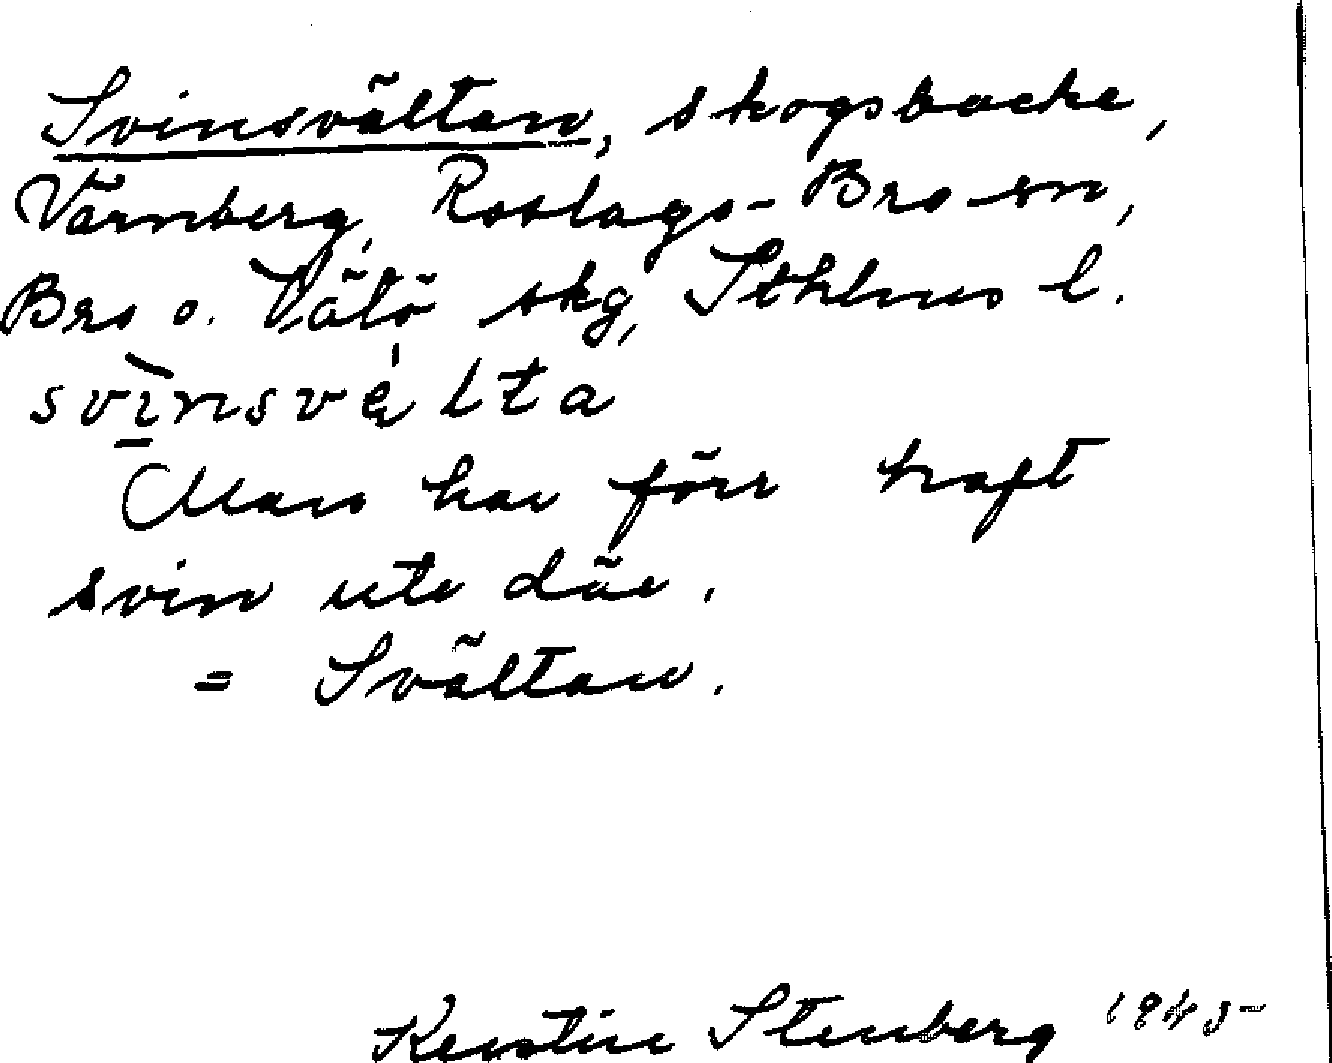 Svinsvältan, skogsbacke,
Värnberg, Roslags-Bro sn,
Bro o. Vätö skg, Sthlms l.
svinsvälta
Man har förr haft
svin ute där.
= Svältan.
Kerstin Stenberg 1945